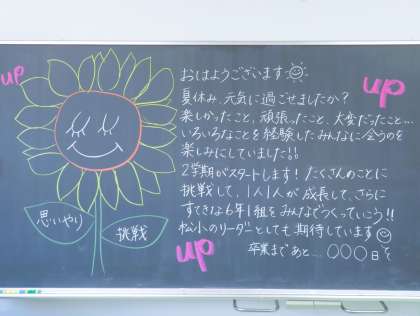 up
up
おはようございます
夏休み、元気に過ごせましたか？
楽しかったこと、頑張ったこと、大変だったこと…
いろいろなことを経験したみんなに会うのを
楽しみにしていました!!
2学期がスタートします！たくさんのことに
挑戦して、1人1人が成長して、さらに
すてきな6年1組をみんなでつくっていこう!!
松小のリーダーとしても期待しています
卒業まであと…〇〇〇日
思いやり
挑戦
up